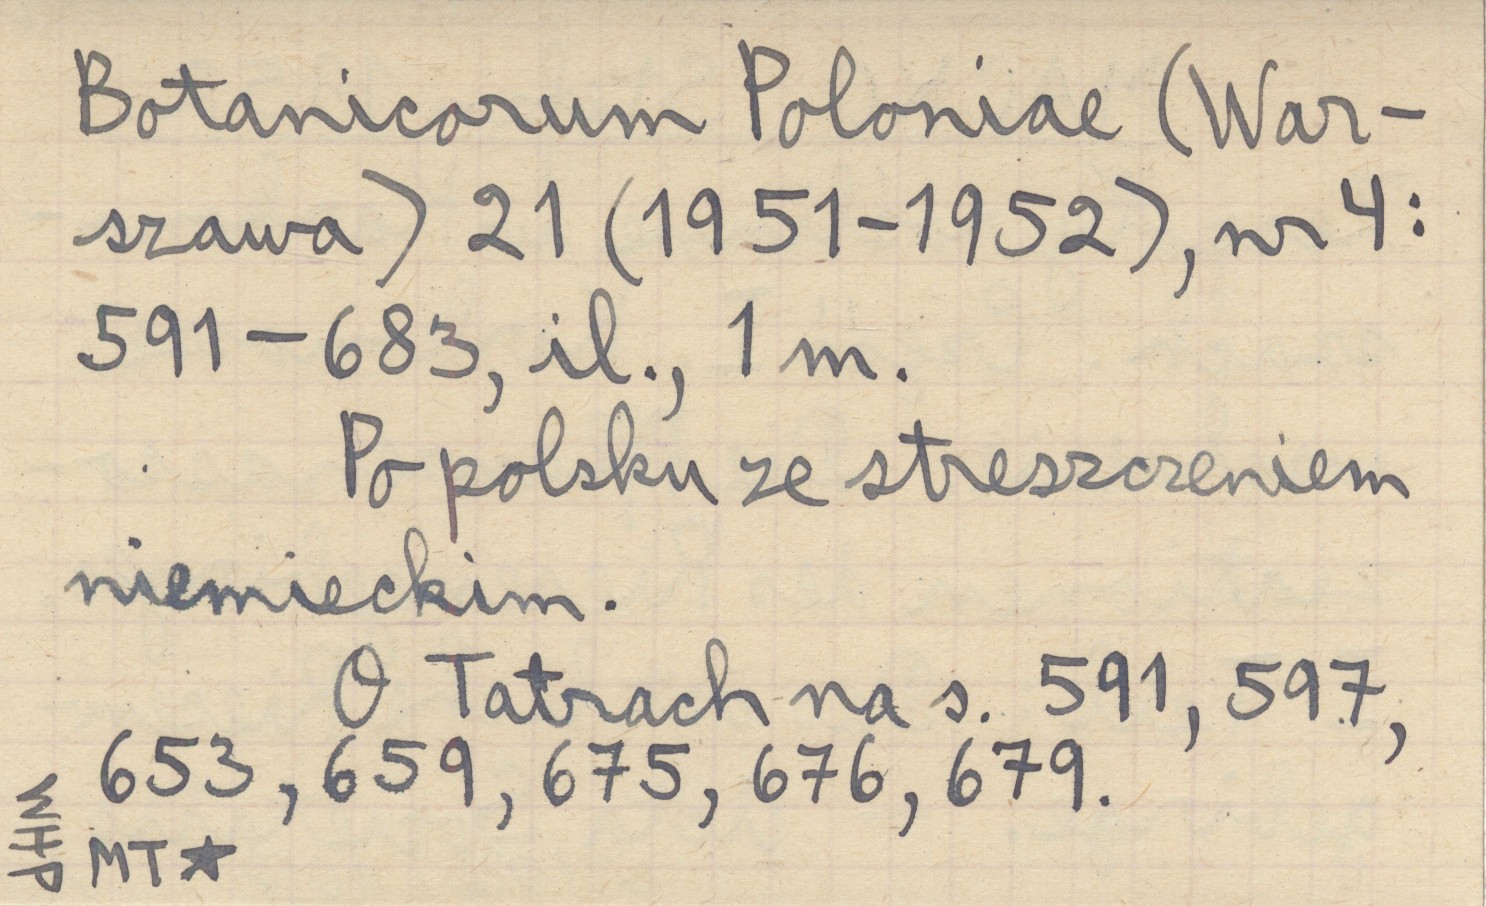 Botanicorum Poloniae (War-
szawa) 21 (1951-1952), nr 4:
591-683, il., 1 m.
Po polsku ze streszczeniem
niemieckim.
O Tatrach na s. 591, 597,
653, 659, 675, 676, 679.
WHP
MT★